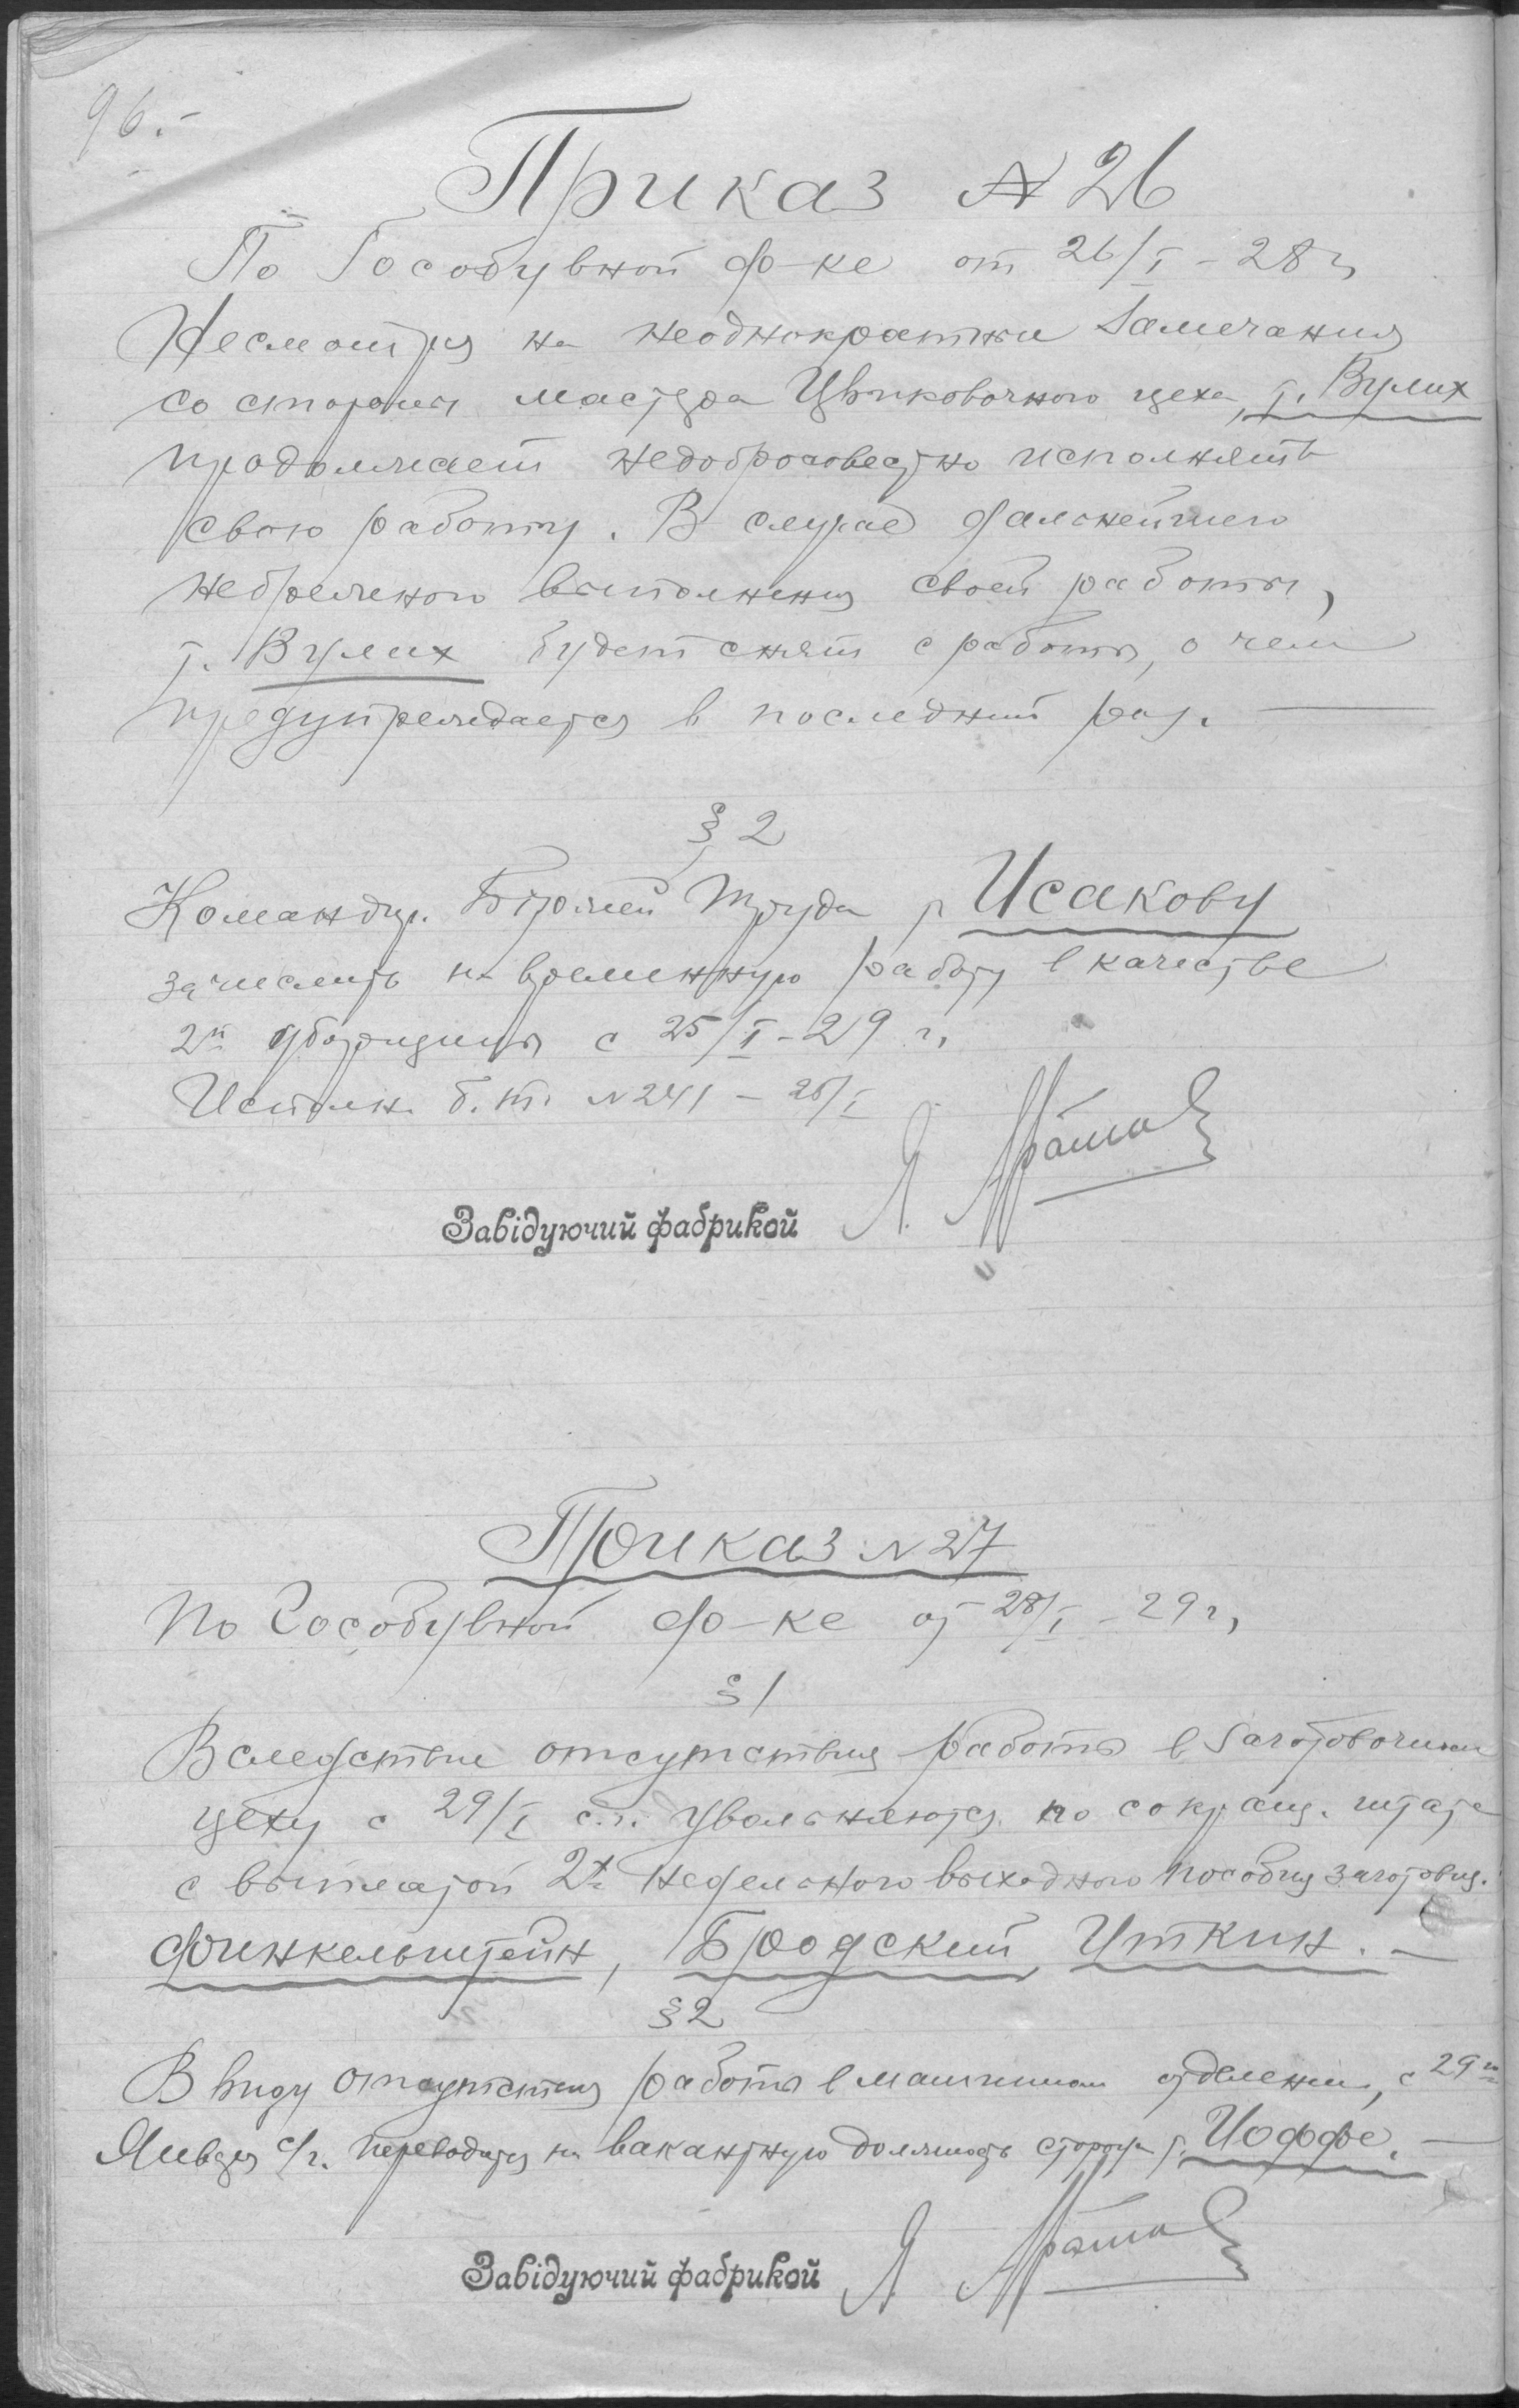 96.-
Приказ № 26
По Гособувной ф-ке от 26/I - 28 г,
Несмотря на неоднократные замечания
со стороны мастера Цвиковочного цеха, т. Вулих
продолжает недобросовестно исполнять
свою работу. В случае дальнейшего
небрежного выполнения своей работы,
т. Вулих будет снят с работы, о чем
предупреждается в последний раз. —
§ 2
Командир. Биржей Труда т. Исакову
зачислить на временную работу в качестве
2й уборщицы с 25/I - 29 г,
Исполн. б. т. № 241 - 25/I
Завідуючий фабрикой Я.
Приказ № 27
По Гособувной ф-ке от 28/I - 29 г,
§ 1
Вследствие отсутствия работы в Заготовочном
цеху с 29/I с.г. увольняются по сокращ. штата
с выплатой 2х недельного выходного пособия заготовщ.
Финкельштейн, Бродский, Уткин. —
§ 2
В виду отсутствия работы в машинном отделении, с 29го
Января с/г. переводится на вакантную должность сторожа т. Иоффе. —
Завідуючий фабрикой Я.